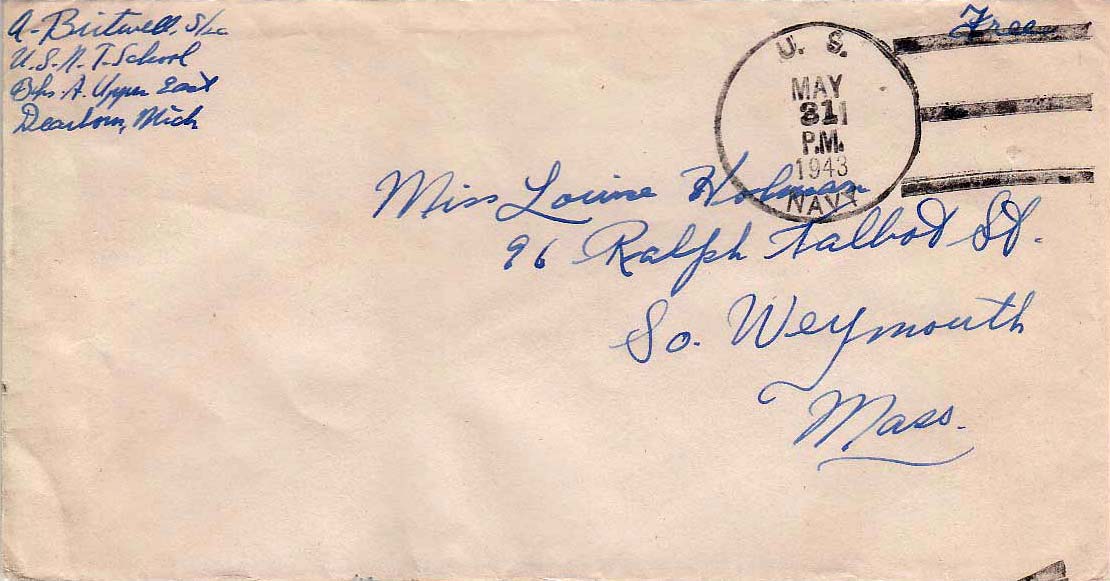 A. Britwell, S/2c
U.S.N.T. School
A. Upper East
Dearborn, Mich
Free
U. S.
MAY
31
P.M.
1943
NAVY
Miss Louise Holman
96 Ralph Talbot St.
So. Weymouth
Mass.